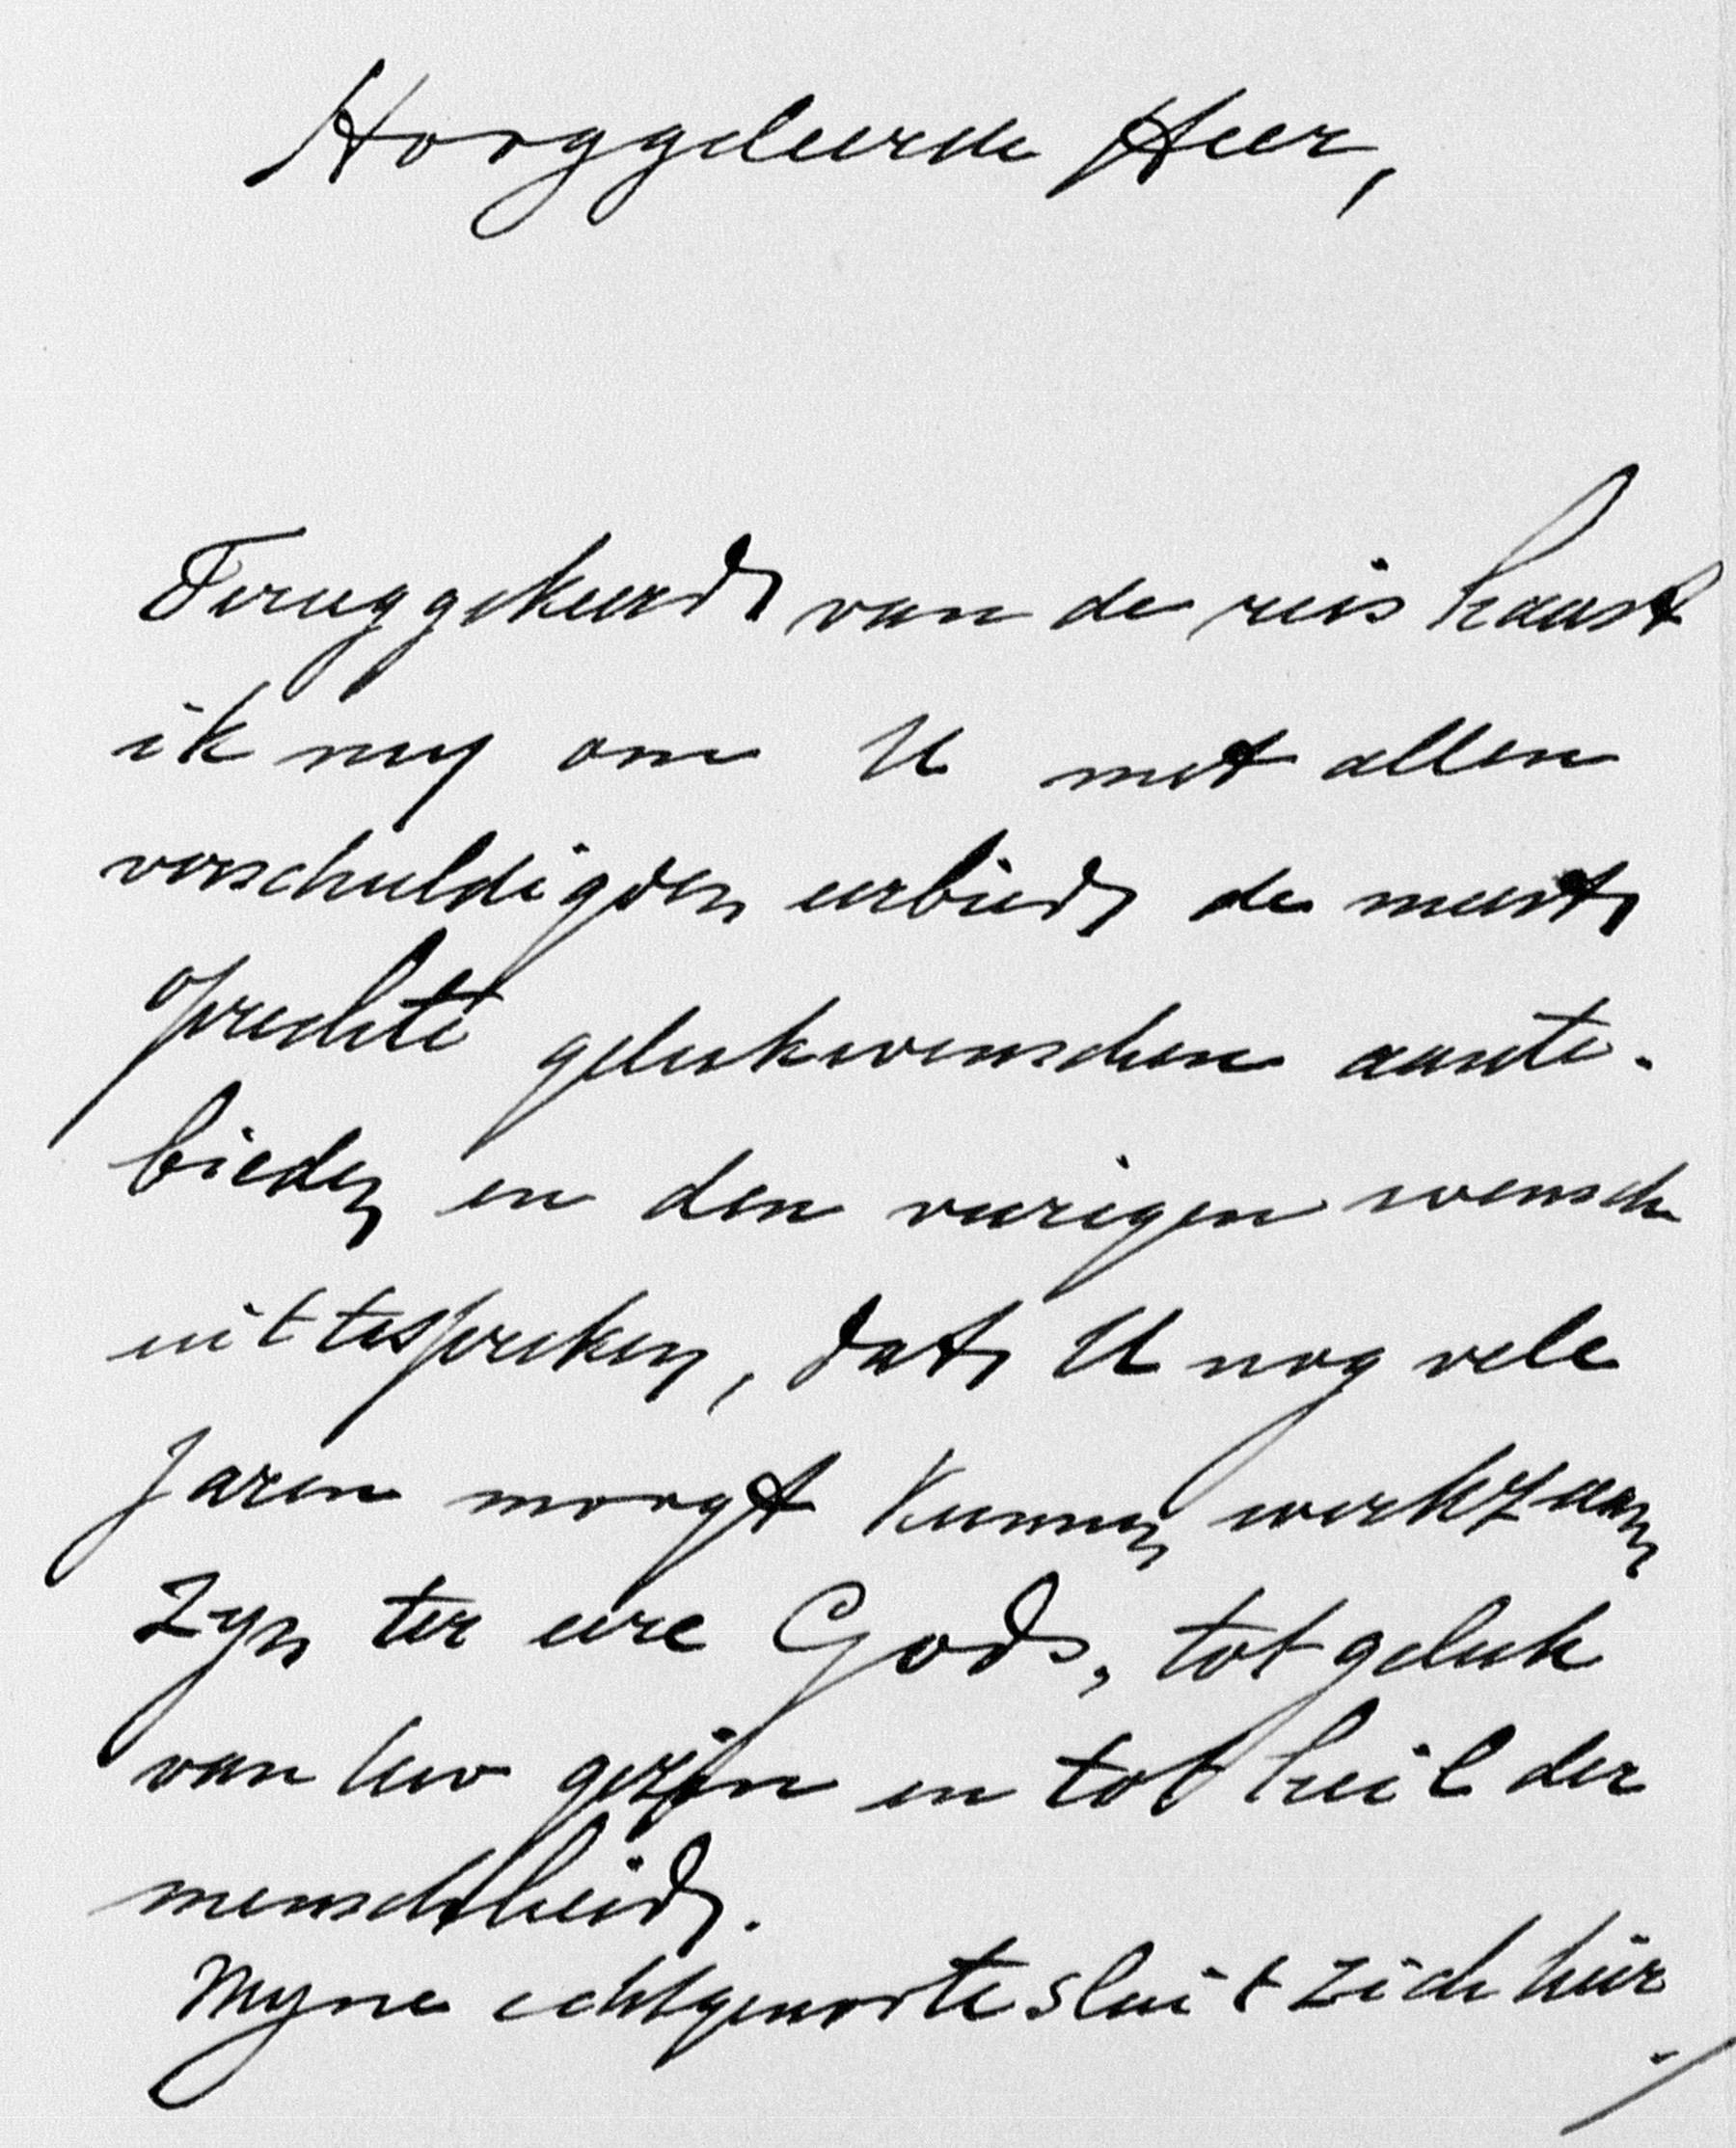 Hooggeleerde Heer,
Teruggekeerd van de reis haast
ik my om U met allen
verschuldigden eerbied de meest
oprechte gelukwenschen aante-
bieden en den vurigen wensch
uittespreken, dat U nog vele
Jaren moogt kunnen werkzaam
zyn ter eere Gods, tot geluk
van Uw gezin en tot heil der
menschheid.
Myne echtgenoote sluit zich hier